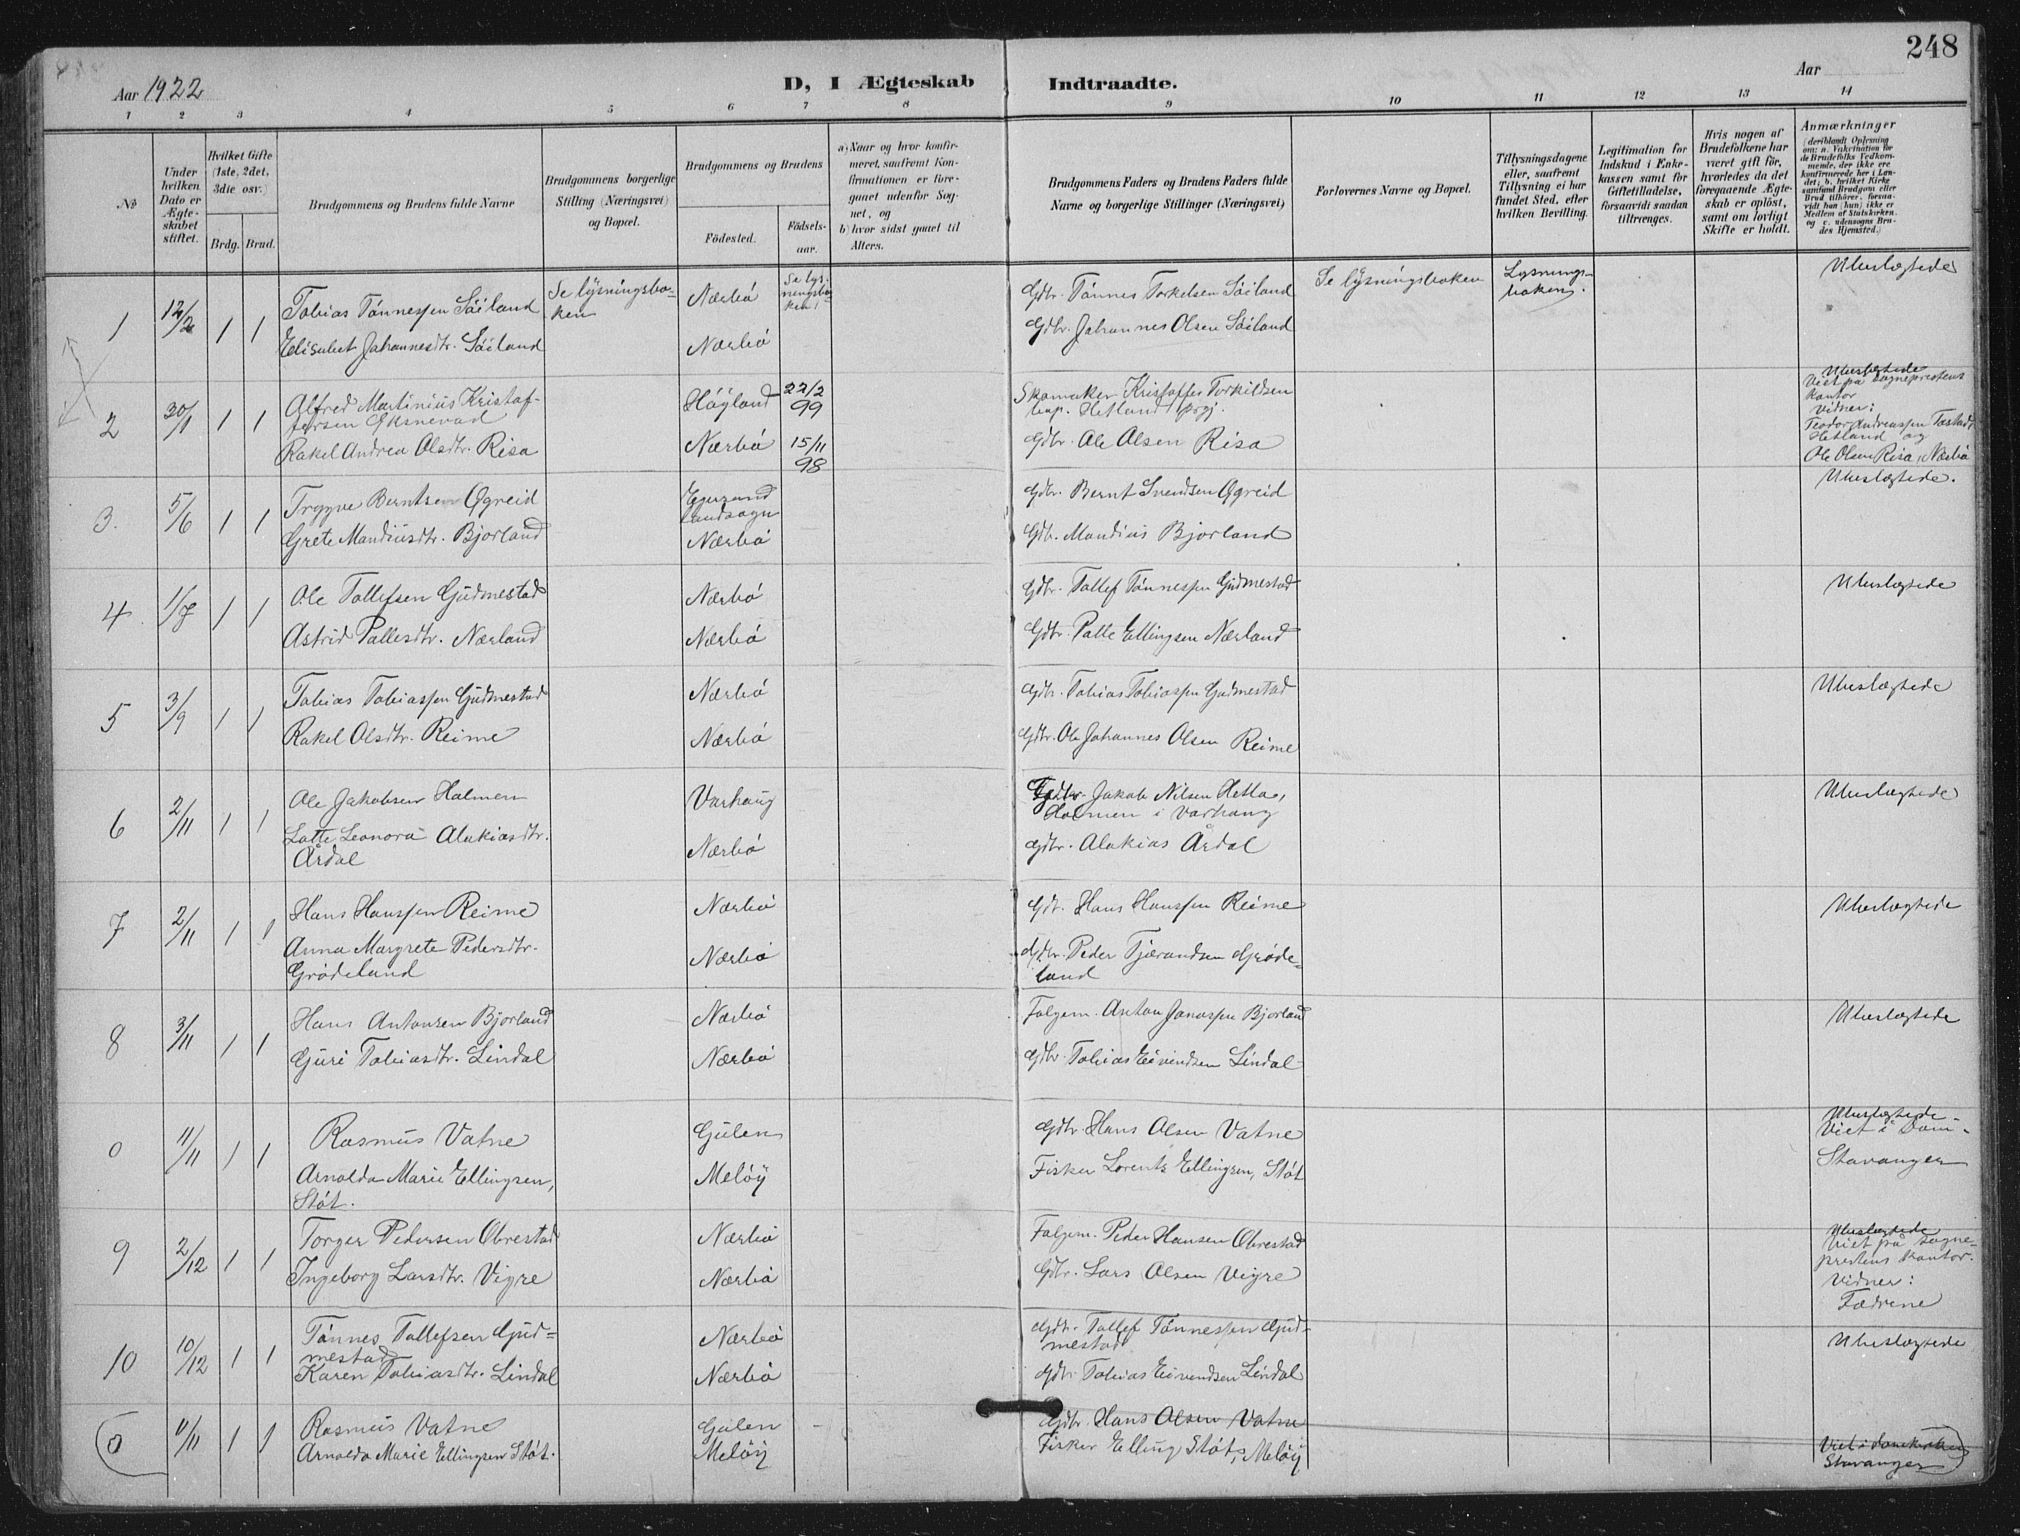 248
Aar 1922
D, I Ægteskab Indtraadte.
Aar
1 2 3 4 5 6 7 8 9 10 11 12 13 14
№
Under hvilken Dato er Ægteskabet stiftet.
Hvilket Gifte (1ste, 2det, 3die osv.)
Brdg. Brud.
Brudgommens og Brudens fulde Navne
Brudgommens borgerlige Stilling (Næringsvei) og Bopæl.
Brudgommens og Brudens
Fødested. Fødselsaar.
a) Naar og hvor konfirmeret, saafremt Konfirmationen er foregaaet udenfor Sognet, og
b) hvor sidst gaaet til Alters.
Brudgommens Faders og Brudens Faders fulde Navne og borgerlige Stillinger (Næringsvei)
Forlovernes Navne og Bopæl.
Tillysningsdagene eller, saafremt Tillysning ei har fundet Sted, efter hvilken Bevilling.
Legitimation for Indskud i Enkekassen samt for Giftetilladelse, forsaavidt saadan tiltrænges.
Hvis nogen af Brudefolkene har været gift før, hvorledes da det foregaaende Ægteskab er opløst, samt om lovligt Skifte er holdt.
Anmærkninger
(deriblandt Oplysning om: a. Vakcination for de Brudefolks Vedkommende, der ikke ere konfirmerede her i Landet; b. hvilket Kirkesamfund Brudgom eller Brud tilhører, forsaavidt han (hun) ikke er Medlem af Statskirken, og c. udensogns Brudes Hjemsted.)
1 12/2 1 1 Tobias Tønnessen Søiland Se lysningsboken Nærbø Se lysningsboken! Gdbr. Tønnes Torkelsen Søiland Se lysningsboken Lysningsboken. Ubeslegtede
Elisabet Johannesdtr. Søiland Nærbø Gdbr. Johannes Olsen Søiland
2 30/1 1 1 Alfred Martinius Kristoffersen Eksnevad Høyland 22/2 99 Skomaker Kristoffer Torkildsen bop. Hetland prgj. Ubeslegtede
Viet på sogneprestens kontor
Vidner:
Rakel Andrea Olsdtr. Risa Nærbø 15/11 98 Gdbr. Ole Olsen Risa Teodor Andreassen Tastad, Hetland og
Ole Olsen Risa, Nærbø
3. 5/6 1 1 Trygve Berntsen Øgreid Egersund landsogn Gdbr. Bernt Svendsen Øgreid Ubeslegtede.
Grete Mandiusdtr. Bjorland Nærbø Gdb. Mandius Bjorland
4 1/7 1 1 Ole Tollefsen Gudmestad Nærbø Gdbr. Tollef Tønnessen Gudmestad Ubeslegtede
Astrid Pallesdtr. Nærland Nærbø Gdbr. Palle Ellingsen Nærland
5 3/9 1 1 Tobias Tobiassen Gudmestad Nærbø Gdbr. Tobias Tobiassen Gudmestad Ubeslegtede
Rakel Olsdtr. Reime Nærbø Gdbr. Ole Johannes Olsen Reime
6 2/11 1 1 Ole Jakobsen Holmen Varhaug Gdbr. Jakob Nilsen Hetla, Holmen i Varhaug Ubeslegtede
Lotte Leonora Alakiasdtr. Årdal Nærbø Gdbr. Alakias Årdal
7 2/11 1 1 Hans Hanssen Reime Nærbø Gdb. Hans Hanssen Reime Ubeslegtede
Anna Margrete Pedersdtr. Grødeland Nærbø Gdbr. Peder Tjærandsen Grødeland
8 3/11 1 1 Hans Antonsen Bjorland Nærbø Folgem. Anton Jonassen Bjorland Ubeslegtede
Guri Tobiasdtr. Lindal Nærbø Gdbr. Tobias Eivindsen Lindal
0 11/11 1 1 Rasmus Vatne Gulen Gdbr. Hans Olsen Vatne Ubeslegtede.
Viet i Dom.
Arnolda Marie Ellingsen, Støt. Meløy Fisker Lorents Ellingsen, Støt Stavanger
9 2/12 1 1 Torger Pedersen Obrestad Nærbø Folgem. Peder Hansen Obrestad Ubeslegtede
Viet på sogneprestens kontor.
Ingeborg Larsdtr. Vigre Nærbø Gdbr. Lars Olsen Vigre Vidner:
Fædrene
10 10/12 1 1 Tønnes Tollefsen Gudmestad Nærbø Gdbr. Tollef Tønnessen Gudmestad Ubeslegtede
Karen Tobiasdtr. Lindal Nærbø Gdbr. Tobias Eivendsen Lindal
0 11/11 1 1 Rasmus Vatne Gulen Gdbr. Hans Olsen Vatne
Arnolda Marie Ellingsen Støt. Meløy Fisker Elling Støt, Meløy Viet i domkirken
Stavanger